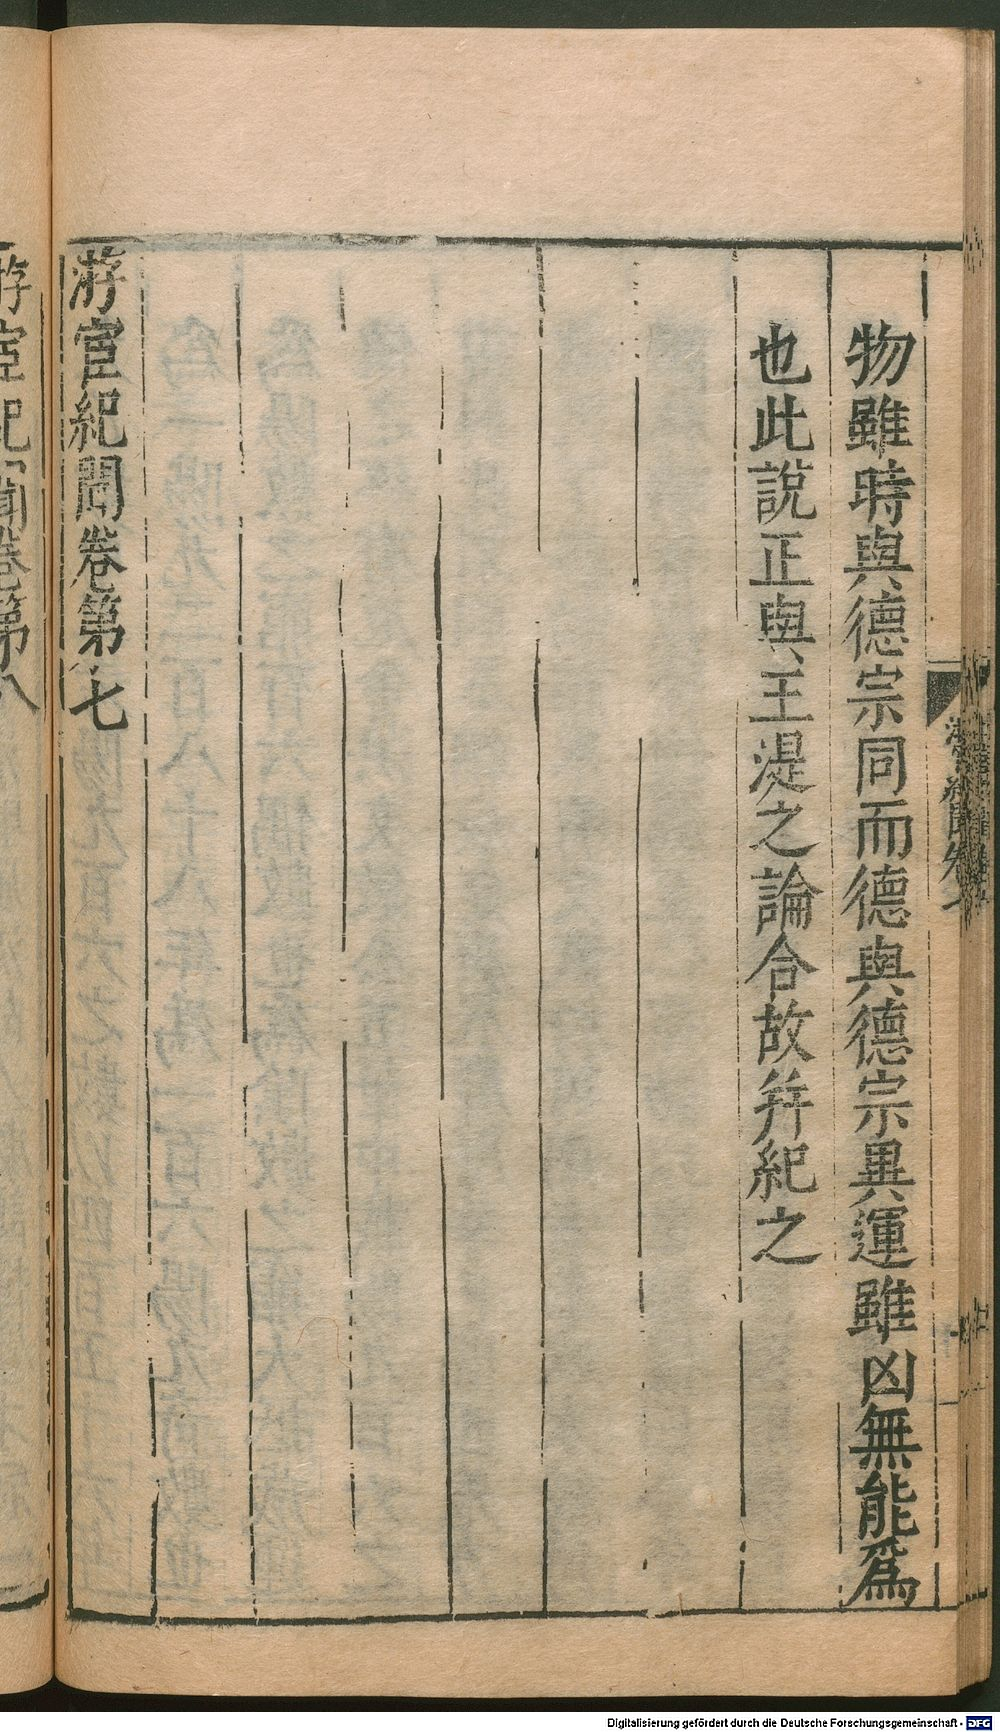 物雖時與德宗同而德與德宗異運雖凶無能爲
也此說正與王湜之論合故幷紀之
游宦紀聞卷第七
游宦紀聞卷第八
Digitalisierung gefördert durch die Deutsche Forschungsgemeinschaft - DFG